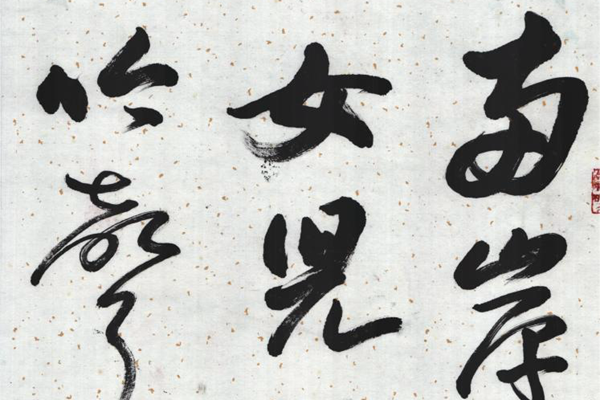 南岸
女兒
吟聲